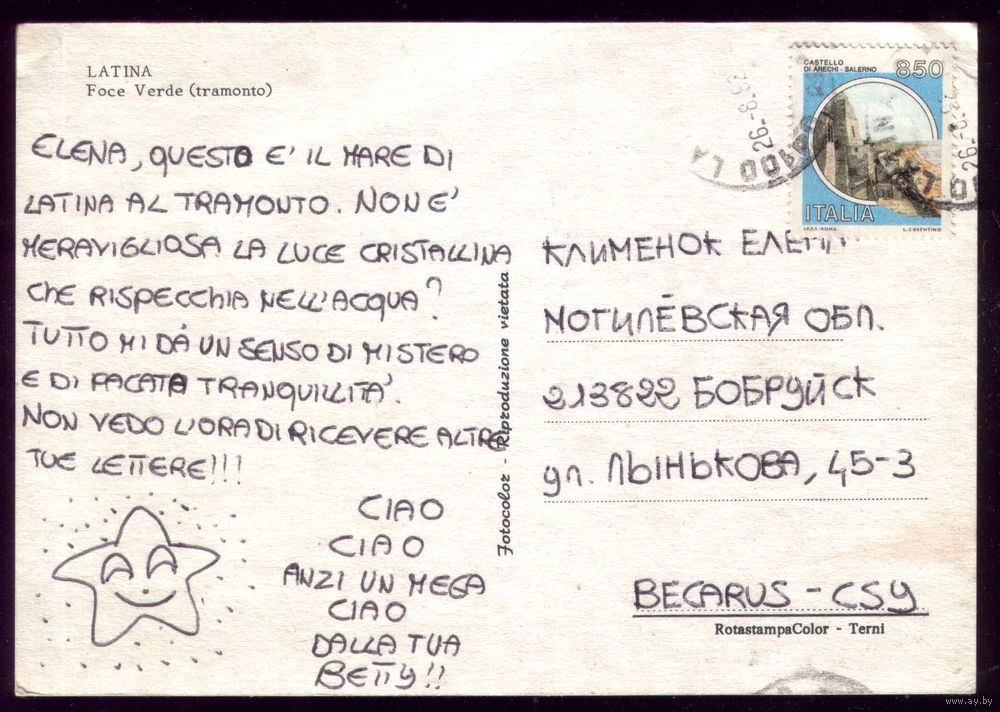 LATINA
Foce Verde (tramonto)
ELENA, QUESTO E' IL MARE DI
LATINA AL TRAMONTO. NON E'
MERAVIGLIOSA LA LUCE CRISTALLINA
CHE RISPECCHIA NELL'ACQUA?
TUTTO MI DÁ UN SENSO DI MISTERO
E DI PACATA TRANQUILLITA'.
NON VEDO L'ORA DI RICEVERE ALTRE
TUE LETTERE!!!
CIAO
CIAO
ANZI UN MEGA
CIAO
DALLA TUA
BETTY!!
Fotocolor - Riproduzione vietata
CASTELLO
DI ARECHI - SALERNO
850
ITALIA
I.P.Z.S. - ROMA
26.-8.-93
КЛИМЕНОК
МОГИЛЁВСКАЯ ОБЛ.
213822 БОБРУЙСК
УЛ. ЛЫНЬКОВА, 45-3
BECARUS - CSY
RotastampaColor - Terni
www.ay.by